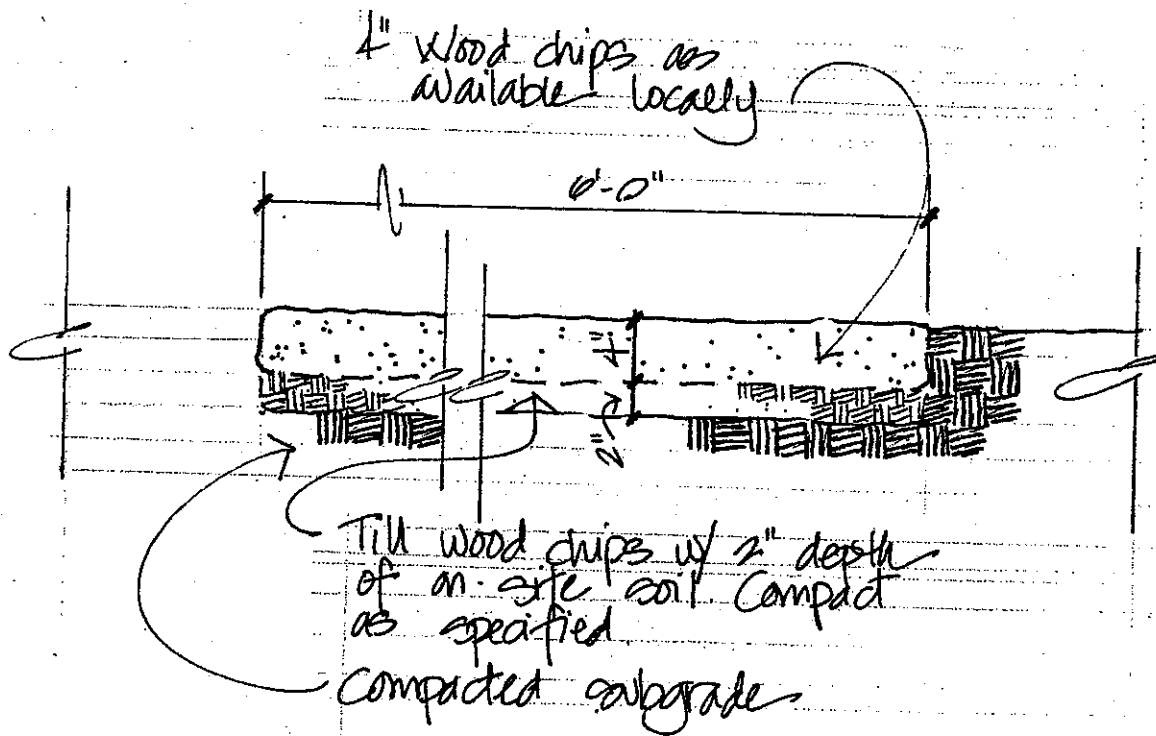 4" Wood chips as
available locally
6'-0"
4"
2"
Till wood chips w/ 2" depth
of on-site soil. Compact
as specified
Compacted subgrade